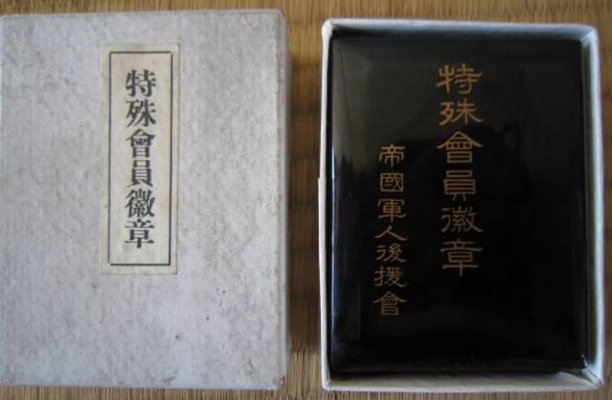 特殊會員徽章
特殊會員徽章
帝國軍人後援會